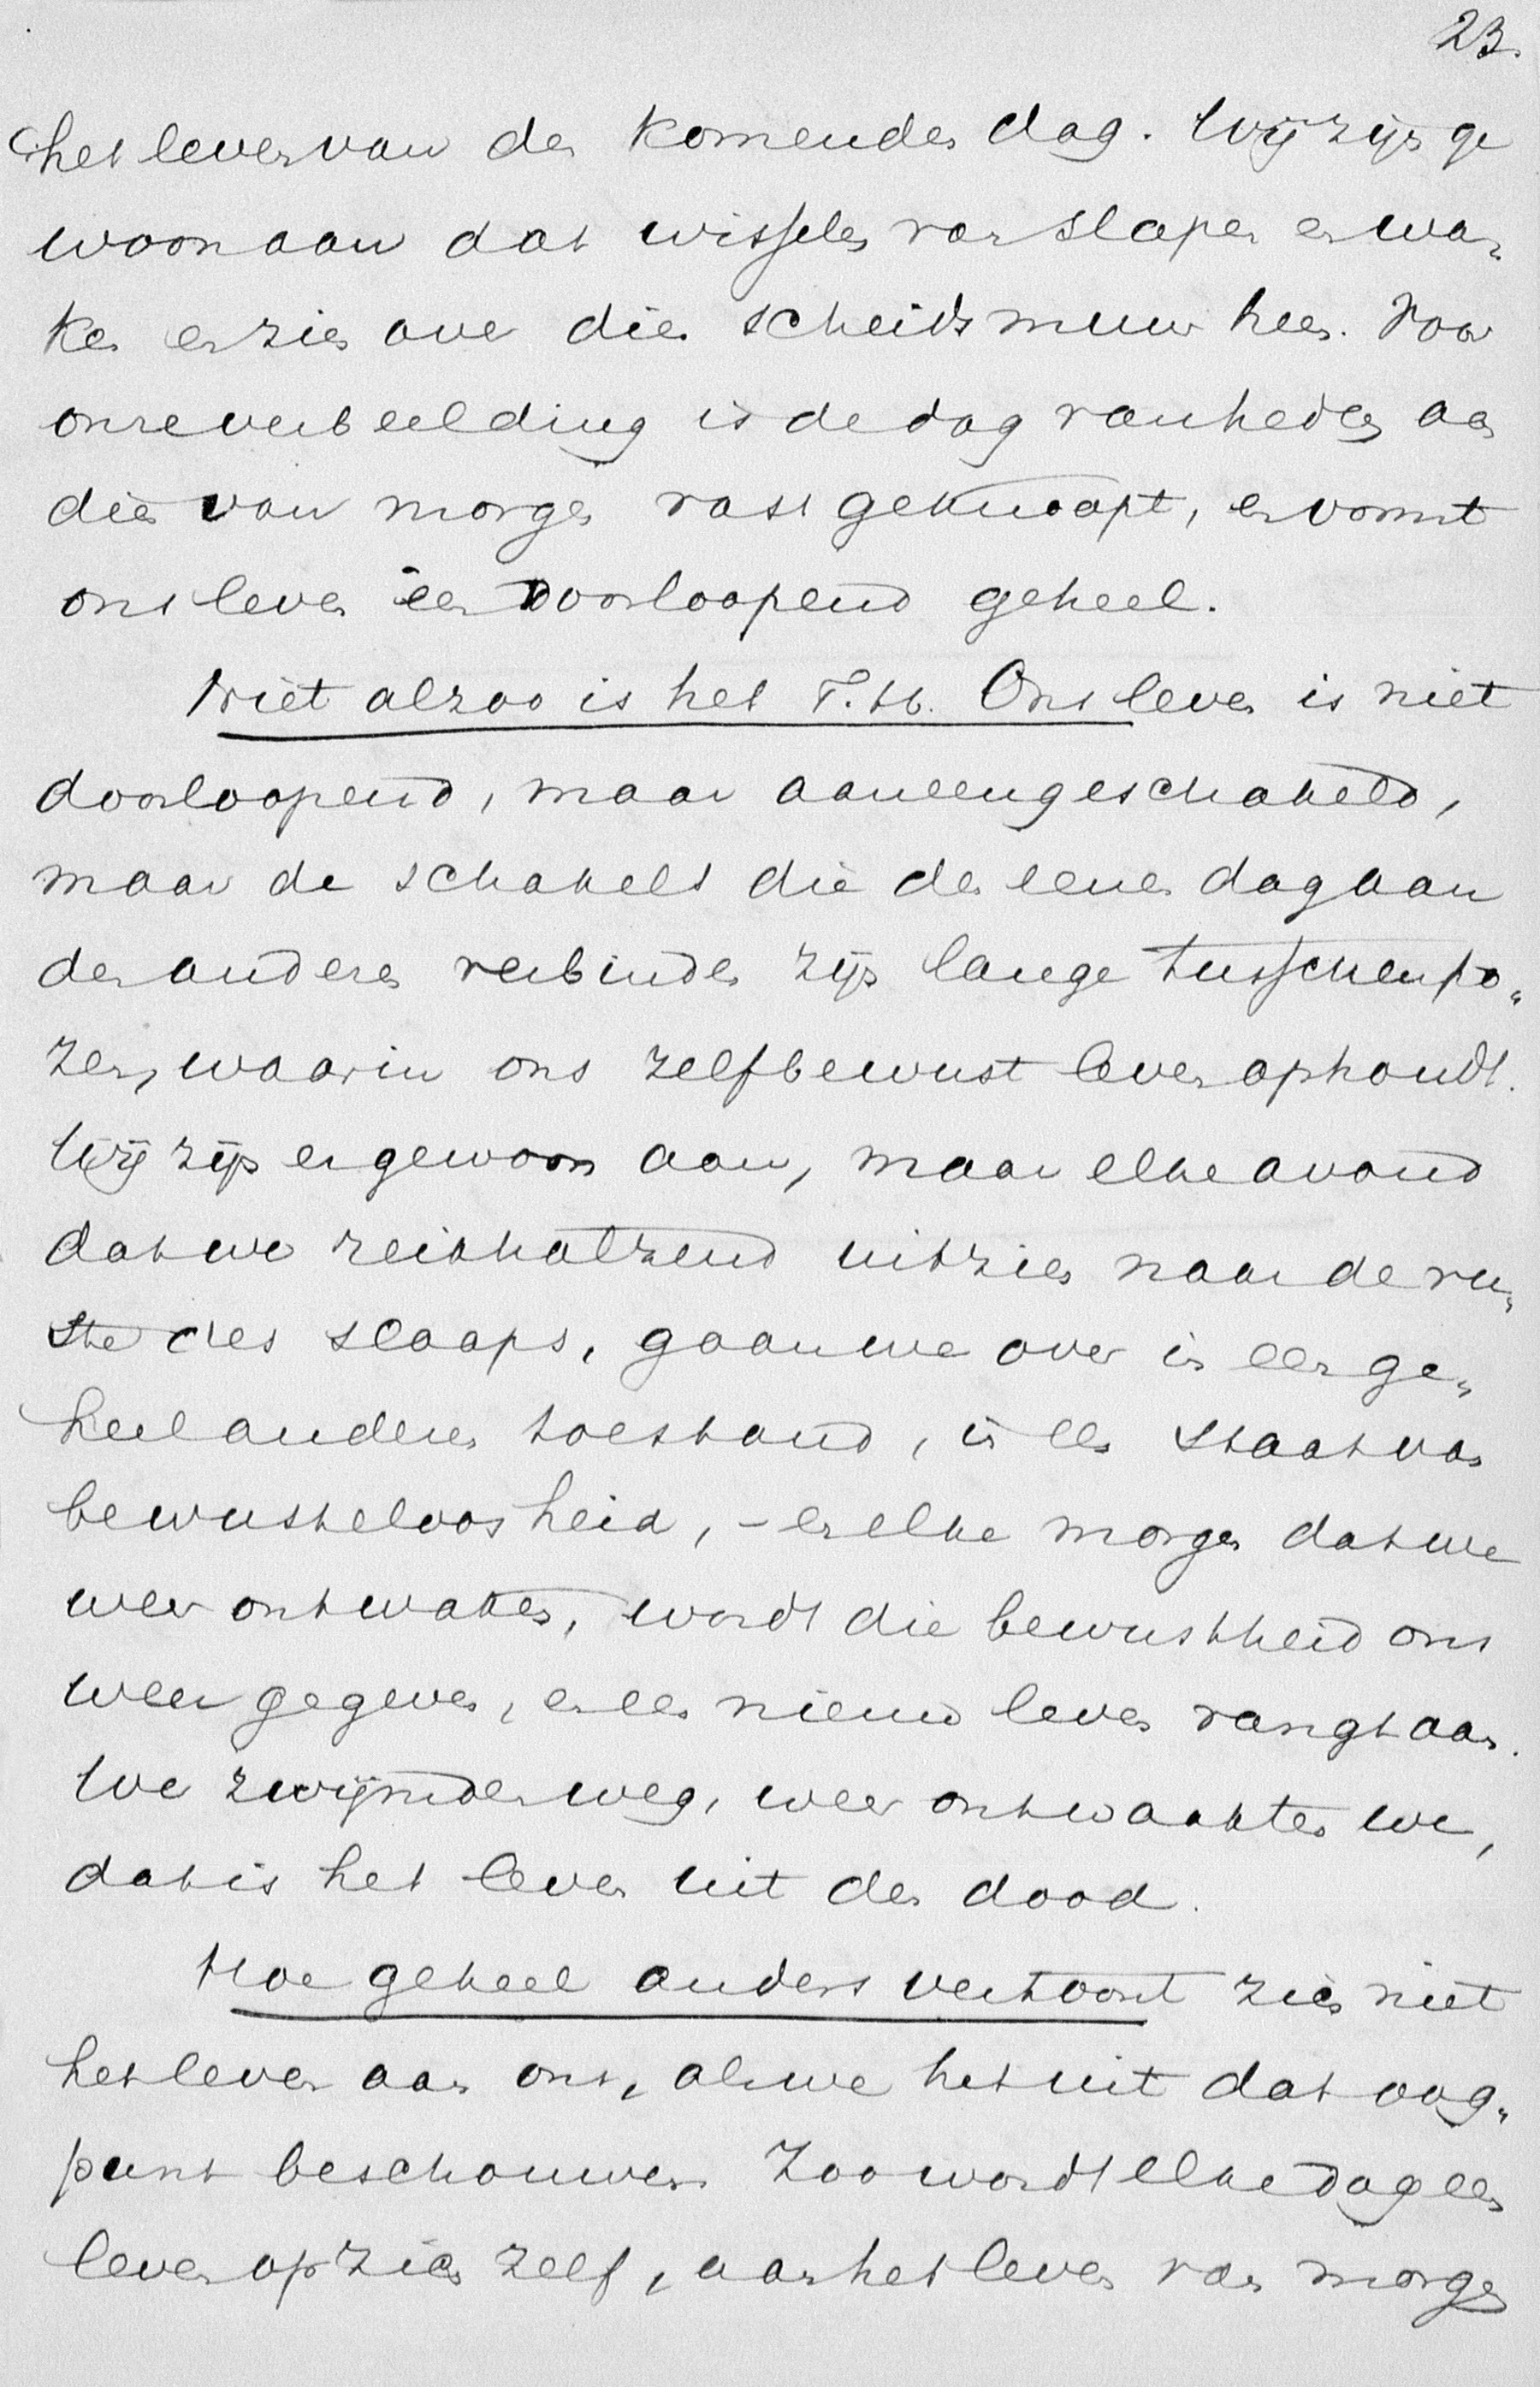 23.
het leven van den komenden dag. Wij zijn ge
woon aan dat wisselen van slapen en wa„
ken en zien over dien scheidsmuur heen. Voor
onze verbeelding is de dag van heden aan
dien van morgen vast geknoopt, en vormt
ons leven één doorloopend geheel.
Niet alzoo is het T.H. Ons leven is niet
doorloopend, maar aaneengeschakeld,
maar de schakels die den eenen dag aan
den anderen verbinden zijn lange tusschenpo„
zen, waarin ons zelfbewust leven ophoudt.
Wij zijn er gewoon aan, maar elke avond
dat we reikhalzend uitzien naar de ru„
ste des slaaps, gaan we over in een ge„
heel anderen toestand, in een staat van
bewusteloosheid, – en elke morgen dat we
weer ontwaken, wordt die bewustheid ons
weer gegeven, en een nieuw leven vangt aan.
We zwijmden weg, weer ontwaakten we,
dat is het leven uit den dood.
Hoe geheel anders vertoont zich niet
het leven aan ons, als we het uit dat oog„
punt beschouwen. Zoo wordt elke dag een
leven op zich zelf, aan het leven van morgen